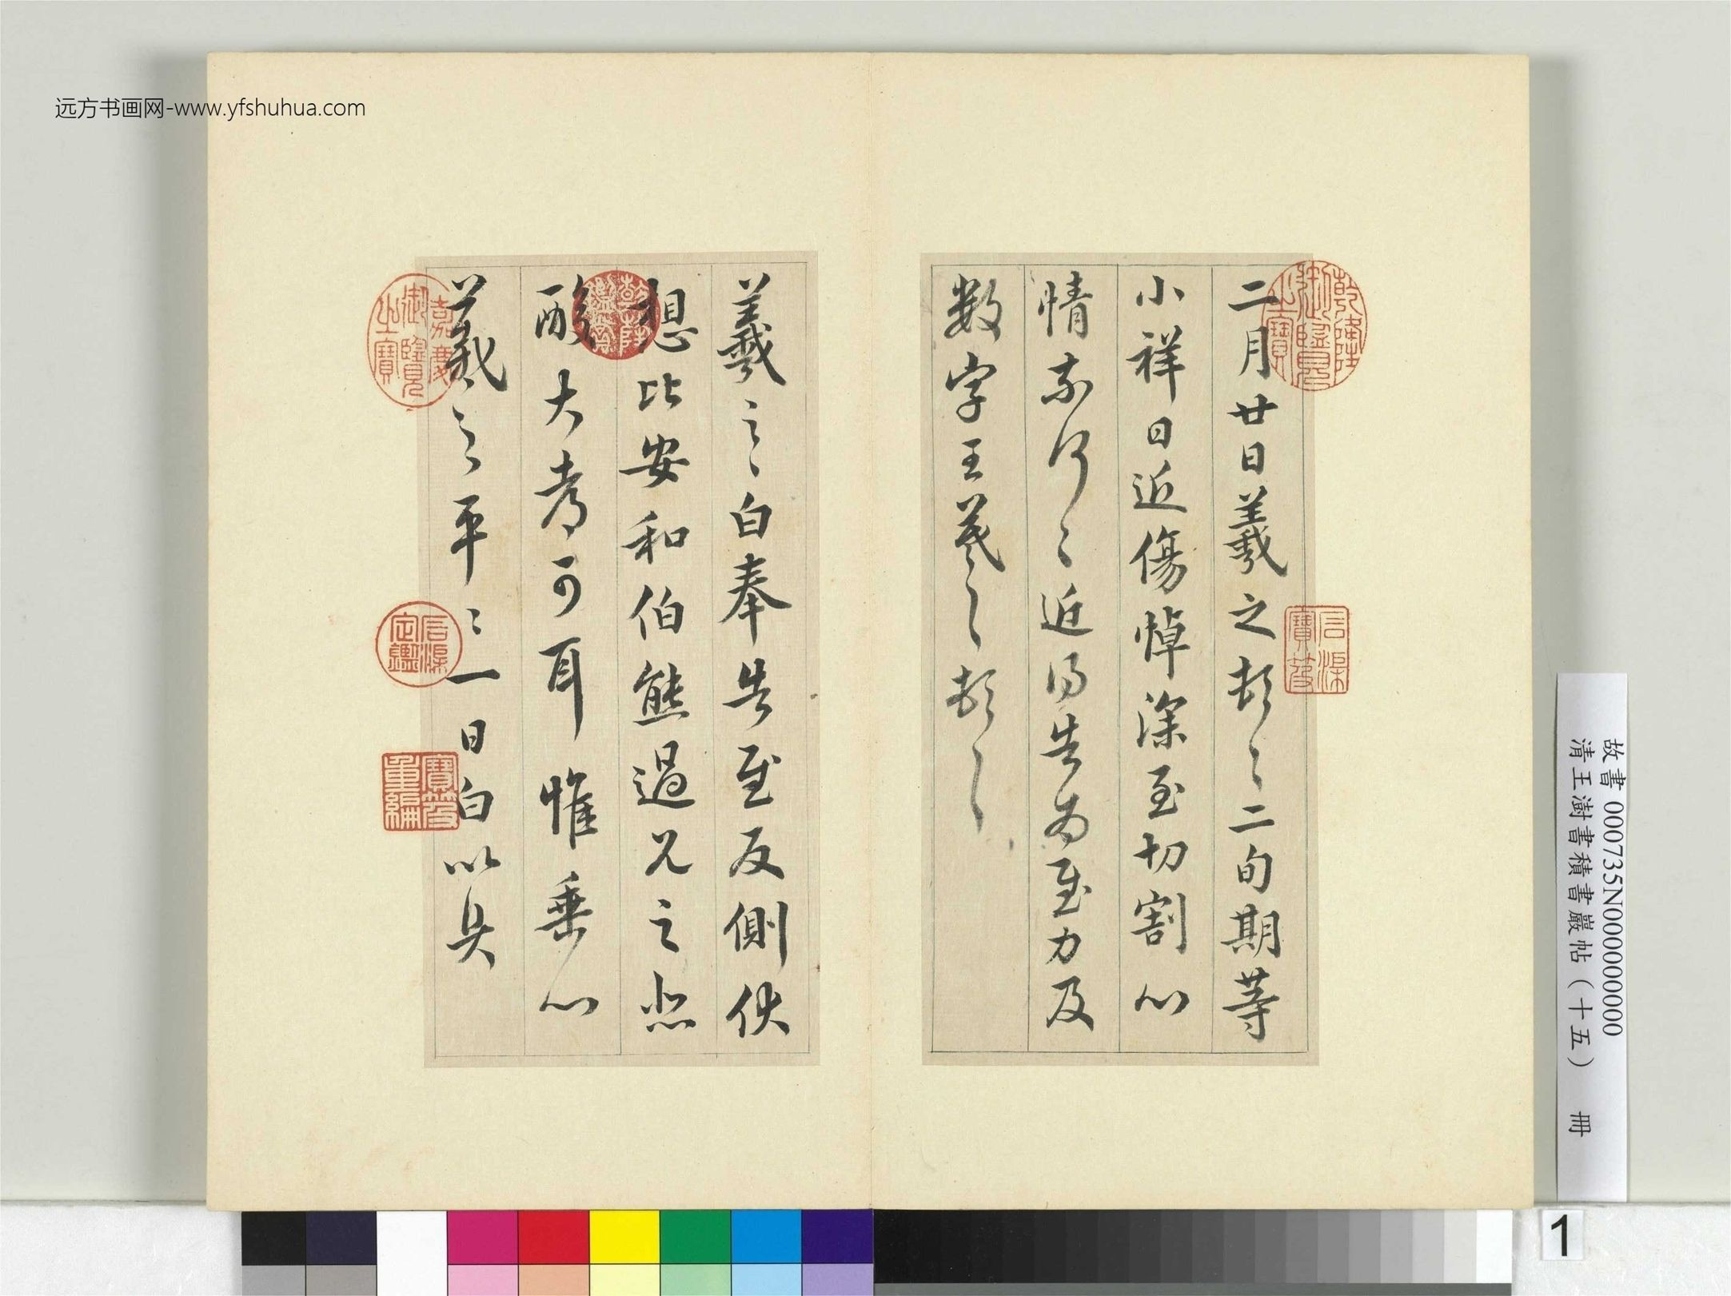 远方书画网-www.yfshuhua.com
二月廿日羲之頓首二旬期等
小祥日近傷悼深至切割心
情奈何〻近得告為慰力及
数字王羲之頓首
羲之白奉告慰反側伏
想比安和伯熊過見之悲
酸大都可耳惟垂心
羲之平〻一日白以具
乾隆御覽之寶
石渠寶笈
乾隆鑑賞
嘉慶御覽之寶
石渠定鑑
寶笈重編
故書 000735N000000000
清王澍書積書巖帖(十五) 冊
1